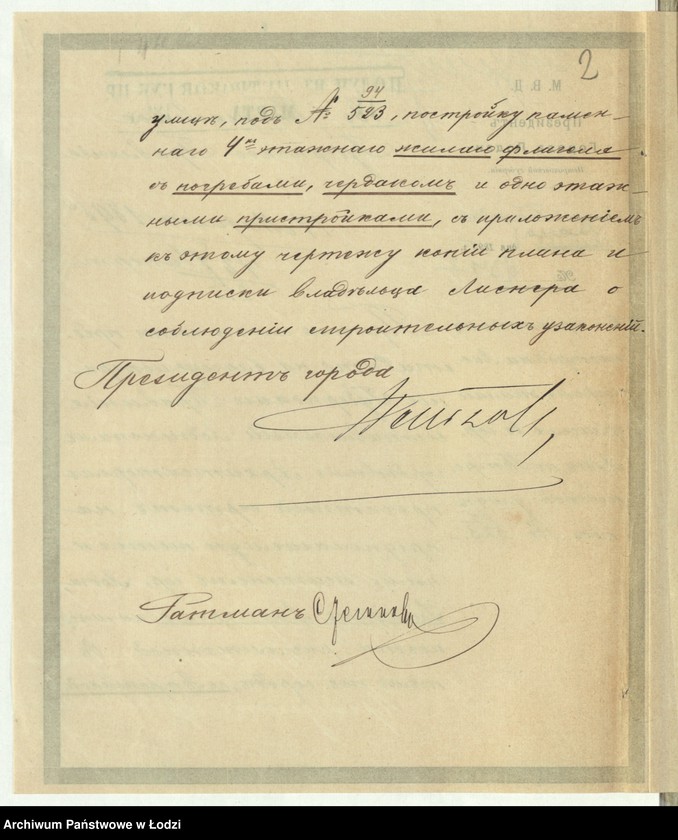 2
улицѣ, подъ № 94/523, постройку камен-
наго 4хъ этажнаго жилаго флигеля
съ погребами, чердакомъ и одноэтаж-
ными пристройками, съ приложеніемъ
къ этому чертежу копіи плана и
подписки владѣльца Лиснера о
соблюденіи строительныхъ узаконеній.
Президентъ города
Ратманъ
Archiwum Państwowe w Łodzi